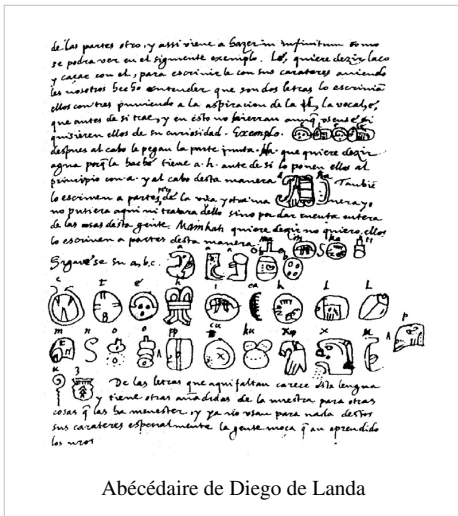 de las partes otro, y assi viene a hazer in infinitum como
se podra ver en el siguiente exemplo. Lé, quiere dezir laço
y caçar con el, para escrivirle con sus carateres aviendo
les nosotros hecho entender que son dos letras lo escrivian
ellos con tres puniendo a la aspiracion de la l, la vocal, é,
que antes de si trae, y en esto no hierran
quisieren ellos de su curiosidad. Exemplo.
despues al cabo le pegan la parte junta. Ha que quiere dezir
agua porq̃ la haché tiene a. h. ante de si lo ponen ellos al
principio con a. y al cabo desta manera Tambie
lo escriven a partes de la una y otra manera yo
no pusiera aqui ni tratara dello sino por dar cuenta entera
de las cosas desta gente. Mainkati quiere dezir no quiero, ellos
lo escriven a partes desta manera
Siguese su a, b, c.
a a a b b
c t e h i ca k l L
m n o o pp cu ku x u p
u z
De las letras que aqui faltan carece esta lengua
y tiene otras añadidas de la nuestra para otras
cosas q̃ las ha menester, y ya no usan para nada destos
sus carateres especialmente la gente moça q̃ an aprendido
los nros
Abécédaire de Diego de Landa